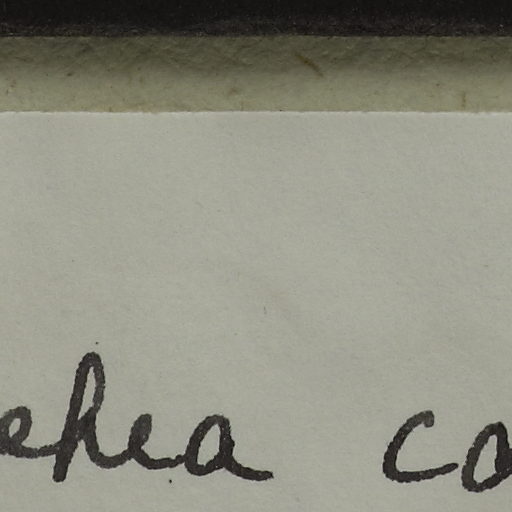 ehea co